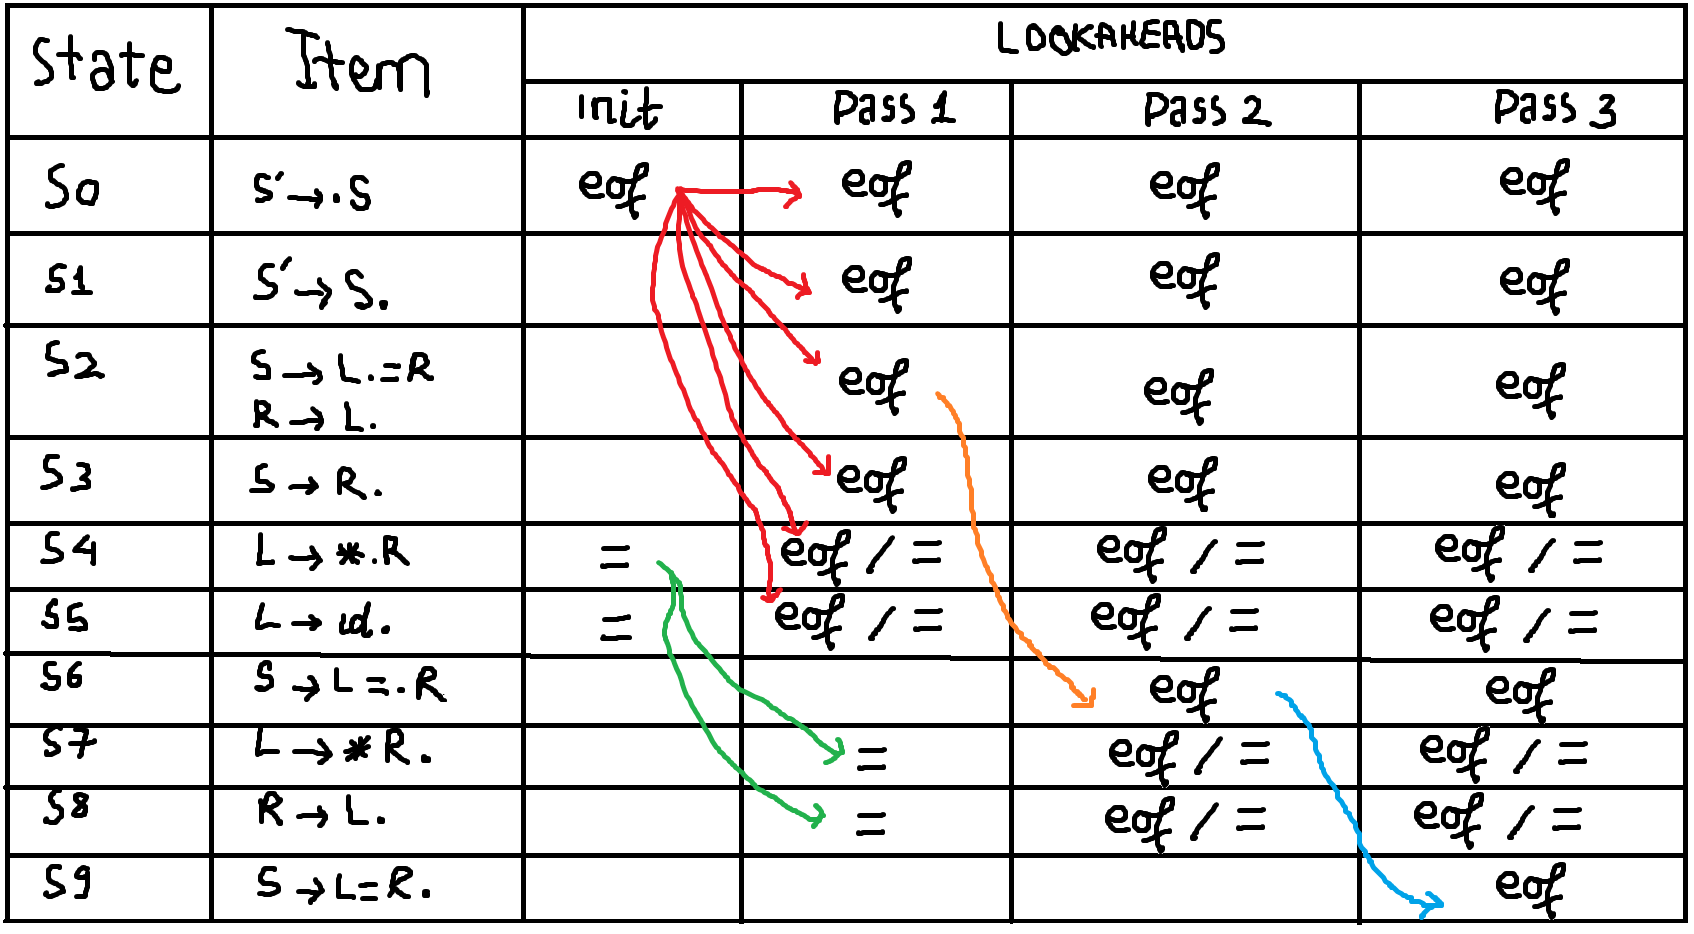 State Item LOOKAHEADS
init Pass 1 Pass 2 Pass 3
S0 S′→.S eof eof eof eof
S1 S′→S. eof eof eof
S2 S→L.=R eof eof eof
R→L.
S3 S→R. eof eof eof
S4 L→*.R = eof / = eof / = eof / =
S5 L→id. = eof / = eof / = eof / =
S6 S→L=.R eof eof
S7 L→*R. = eof / = eof / =
S8 R→L. = eof / = eof / =
S9 S→L=R. eof